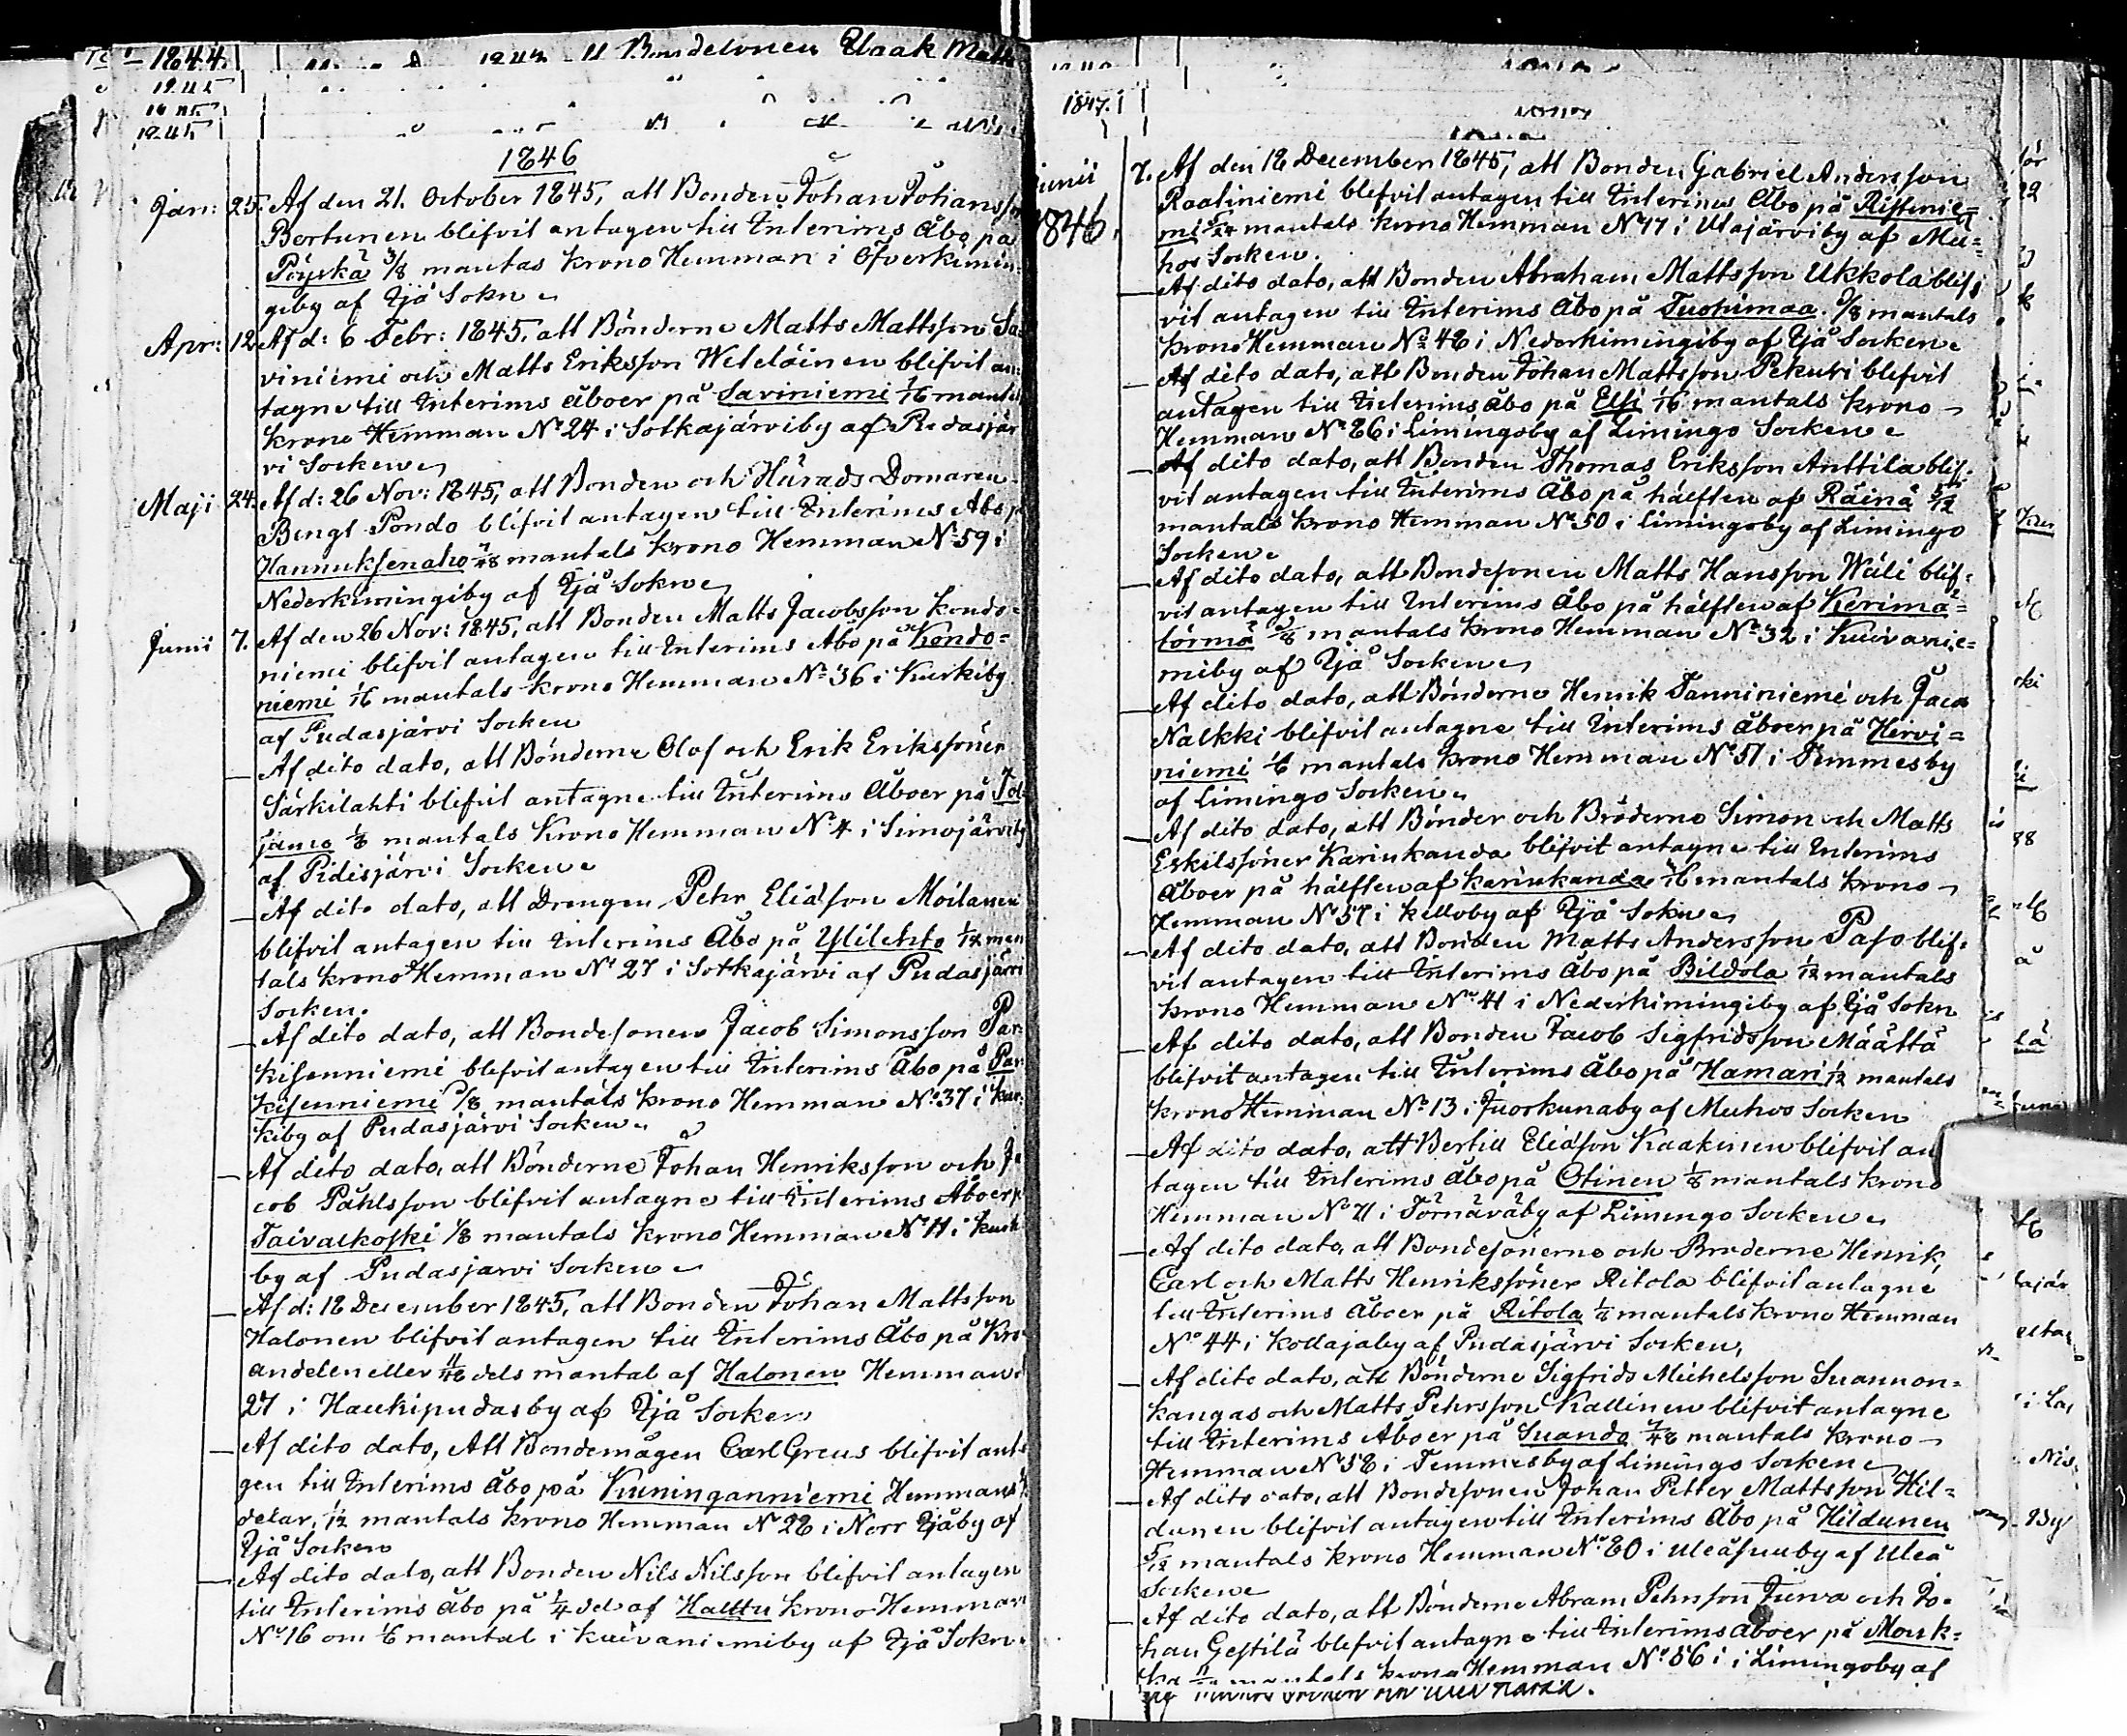 1844. 1843 Bondesonen Isaak Matts
1845
1845
1845
1846
Jan: 25. Af den 21. October 1845, att Bonden Johan Johansson
Bertunen blifvit antagen till Interims Åbo på
Pöyskä 3/8 mantas krono Hemman i Öfverkimin-
giby af Ijå Sokn
Apr: 12 Af d: 6 Febr: 1845, att Bönderne Matts Mattsson Sa
viniemi och Matts Eriksson Weteläinen blifvit an-
tagne till Interims åboer på Saviniemi 1/16 mantals
krono Hemman No 24 i Sotkajärviby af Pudasjär
vi Socken
Maji 24. Af d: 26 Nov: 1845, att Bonden och Härads Domaren
Bengt Pondo blifvit antagen till Interims Åbo på
Hannuksenaho 7/48 mantals krono Hemman No 59 i
Nederkimingiby af Ijå Sokn
Junii 7. Af den 26 Nov: 1845, att Bonden Matts Jacobsson Kondo-
niemi blifvit antagen till Interims Åbo på Kondo=
niemi 1/16 mantals krono Hemman No 36 i Kurkiby
af Pudasjärvi Socken
— Af dito dato, att Bönderne Olof och Erik Erikssöner
Särkilahti blifvit antagne till Interims Åboer på
jämo 1/8 mantals Krono Hemman No 4 i Simojärviby
af Pidisjärvi Socken
— Af dito dato, att Drengen Pehr Eliasson Moilanen
blifvit antagen till Interims Åbo på Ylilehto 1/12 man
tals krono Hemman No 27 i Sotkajärvi af Pudasjärvi
Socken.
— Af dito dato, att Bondesonen Jacob Simonsson Par-
kisenniemi blifvit antagen till Interims Åbo på Par-
kisenniemi 1/8 mantals krono Hemman No 37 i Kur-
kiby af Pudasjärvi Socken
— Af dito dato, att Bönderne Johan Henriksson och Ja
cob Påhlsson blifvit antagne till Interims Åboer på
Taivalkoski 1/8 mantals krono Hemman No 11 i Kurki
by af Pudasjarvi Socken
— Af d: 18 December 1845, att Bonden Johan Mattsson
Halonen blifvit antagen till Interims Åbo på Kro-
andelen eller 11/48 dels mantal af Halonen Hemman
27 i Haukipudasby af Ijå Socken
— Af dito dato, Att Bondemågen Carl Greus blifvit anta
gen till Interims Åbo på Kuninganniemi Hemmans
delar, 1/12 mantals krono Hemman No 28 i Norr Ijåby af
Ijå Socken
— Af dito dato, att Bonden Nils Nilsson blifvit antagen
till Interims åbo på 1/4 del af Halttu krono Hemman
No 16 om 1/6 mantal i Kuivaniemiby af Ijå Sokn
1847.
Junii 1846. 7. Af den 18 December 1845, att Bonden Gabriel Andersson
Raatiniemi blifvit antagen till Interims Åbo på Ristinie=
mi 5/24 mantals krono Hemman No 17 i Utajärviby af Mu=
hos Socken.
— Af dito dato, att Bonden Abraham Mattsson Ukkola blif
vit antagen till Interims Åbo på Tuohimaa /8 mantals
krono Hemman No 48 i Nederkimingiby af Ijå Socken
— Af dito dato, att Bonden Johan Mattsson Pekuri blifvit
antagen till Interims åbo på Elsi 1/16 mantals krono
Hemman No 86 i Limingoby af Limingo Socken
— Af dito dato, att Bonden Thomas Eriksson Anttila blif-
vit antagen till Interims Åbo på hälften af Räinä 5/12
mantals krono Hemman No 50 i Limingoby af Limingo
Socken
— Af dito dato, att Bondesonen Matts Hansson Wäli blif-
vit antagen till Interims Åbo på hälften af Kerimä=
törmä /8 mantals krono Hemman No 32 i Kuivanie=
miby af Ijå Socken
— Af dito dato, att Bönderne Henrik Tanniniemi och Jaco
Nalkki blifvit antagne till Interims åboer på Hirvi=
niemi 1/6 mantals krono Hemman No 51 i Temmesby
af Limingo Socken
— Af dito dato, att Bönder och Bröderne Simon och Matts
Eskilssöner Karinkanda blifvit antagne till Interims
Åboer på hälften af Karinkanda /16 mantals krono
Hemman No 57 i Kelloby af Ijå Sokn
— Af dito dato, att Bonden Matts Andersson Paso blif-
vit antagen till Interims Åbo på Bildola 1/12 mantals
krono Hemman No 41 i Nederkimingiby af Ijå Sokn
— Af dito dato, att Bonden Jacob Sigfridsson Määttä
blifvit antagen till Interims Åbo på Hamari 1/12 mantals
krono Hemman No 13 i Juorkunaby af Muhos Socken
— Af dito dato, att Bertill Eliasson Kaakinen blifvit an
tagen till Interims åbo på Otinen 1/8 mantals krono
Hemman No 21 i Törnäväby af Limingo Socken
— Af dito dato, att Bondesönerne och Bröderne Henrik,
Carl och Matts Henrikssöner Ritola blifvit antagne
till Interims åboer på Ritola 1/8 mantals krono Hemman
No 44 i Kollajaby af Pudasjärvi Socken,
— Af dito dato, att Bönderne Sigfrids Michelsson Suannon=
kangas och Matts Pehrsson Kallinen blifvit antagne
till Interims Åboer på Suando 7/48 mantals krono
Hemman No 58 i Temmesby af Limingo Socken
— Af dito dato, att Bondesonen Johan Petter Mattsson Hil=
dunen blifvit antagen till Interims Åbo på Hildunen
5/12 mantals krono Hemman No 80 i Uleåsuuby af Uleå
Socken
— Af dito dato, att Bönderne Abram Pehrsson Juva och Jo-
han Gestilä blifvit antagne till Interims åboer på Mouk=
ka mantals krono Hemman No 56 i i Limingoby af